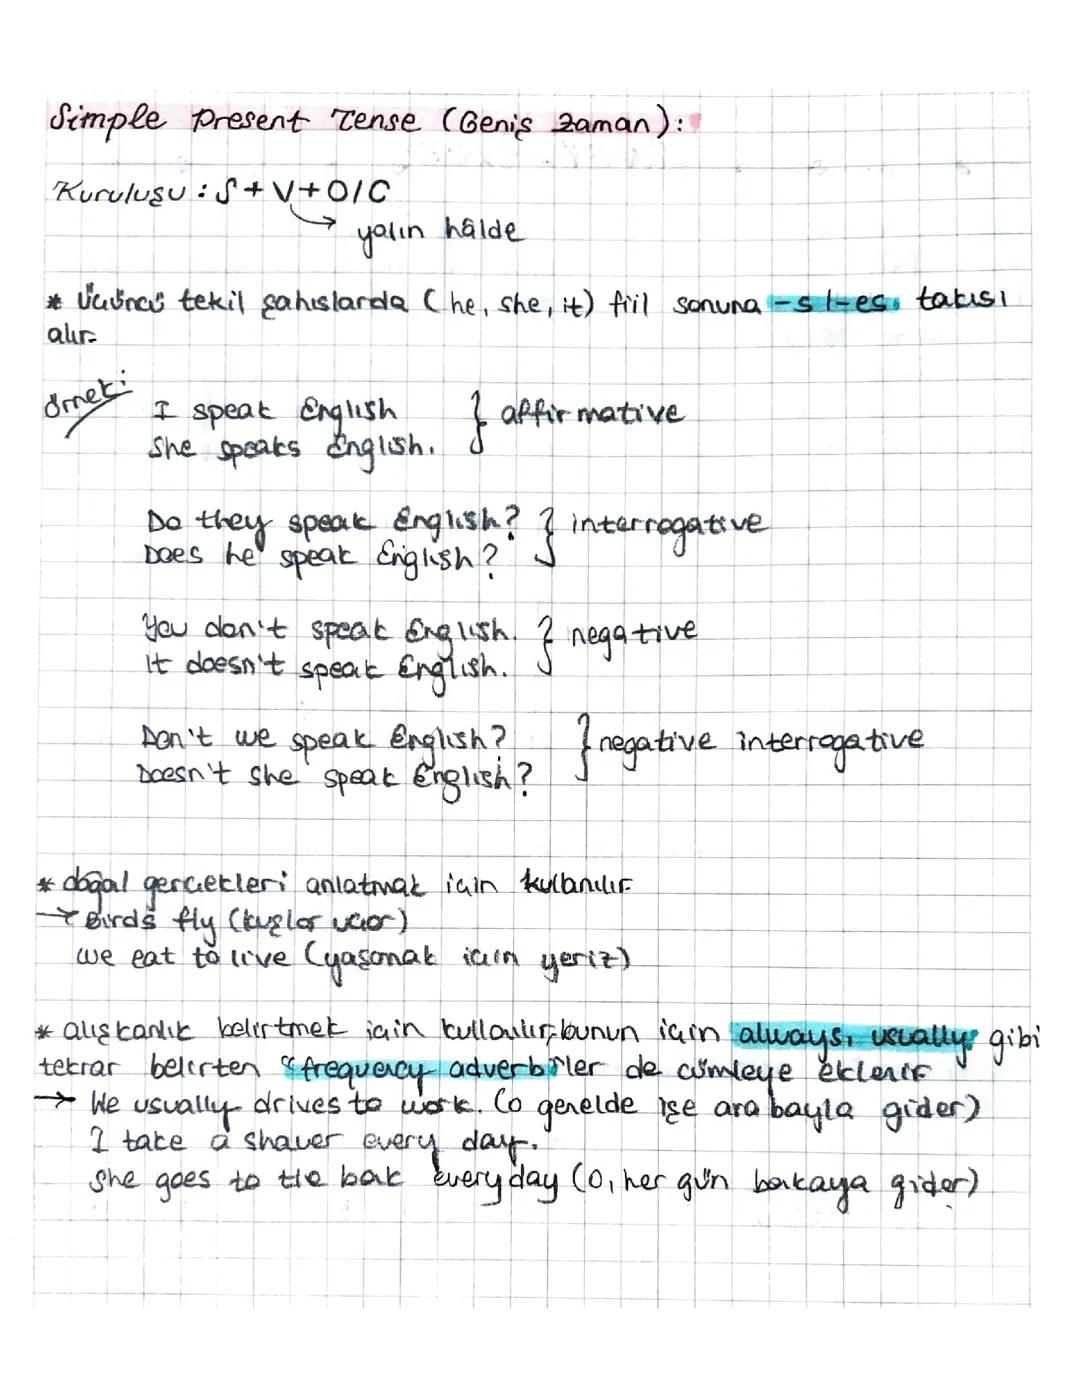 Simple Present Tense (Geniş Zaman):
Kuruluşu : S + V + O/C
yalın hâlde
* Üçüncü tekil şahıslarda (he, she, it) fiil sonuna -s/-es takısı
alır.
örnek:
I speak English
She speaks English.
} affirmative
Do they speak English?
Does he speak English?
} interrogative
You don't speak English.
It doesn't speak English.
} negative
Don't we speak English?
Doesn't she speak English?
} negative interrogative
* doğal gerçekleri anlatmak için kullanılır
→ Birds fly (kuşlar uçar)
we eat to live (yaşamak için yeriz)
* alışkanlık belirtmek için kullanılır, bunun için always, usually gibi
tekrar belirten "frequency adverb"ler de cümleye eklenir
→ He usually drives to work. (o genelde işe arabayla gider)
I take a shawer every day.
She goes to the bak everyday (O, her gün bakaya gider)